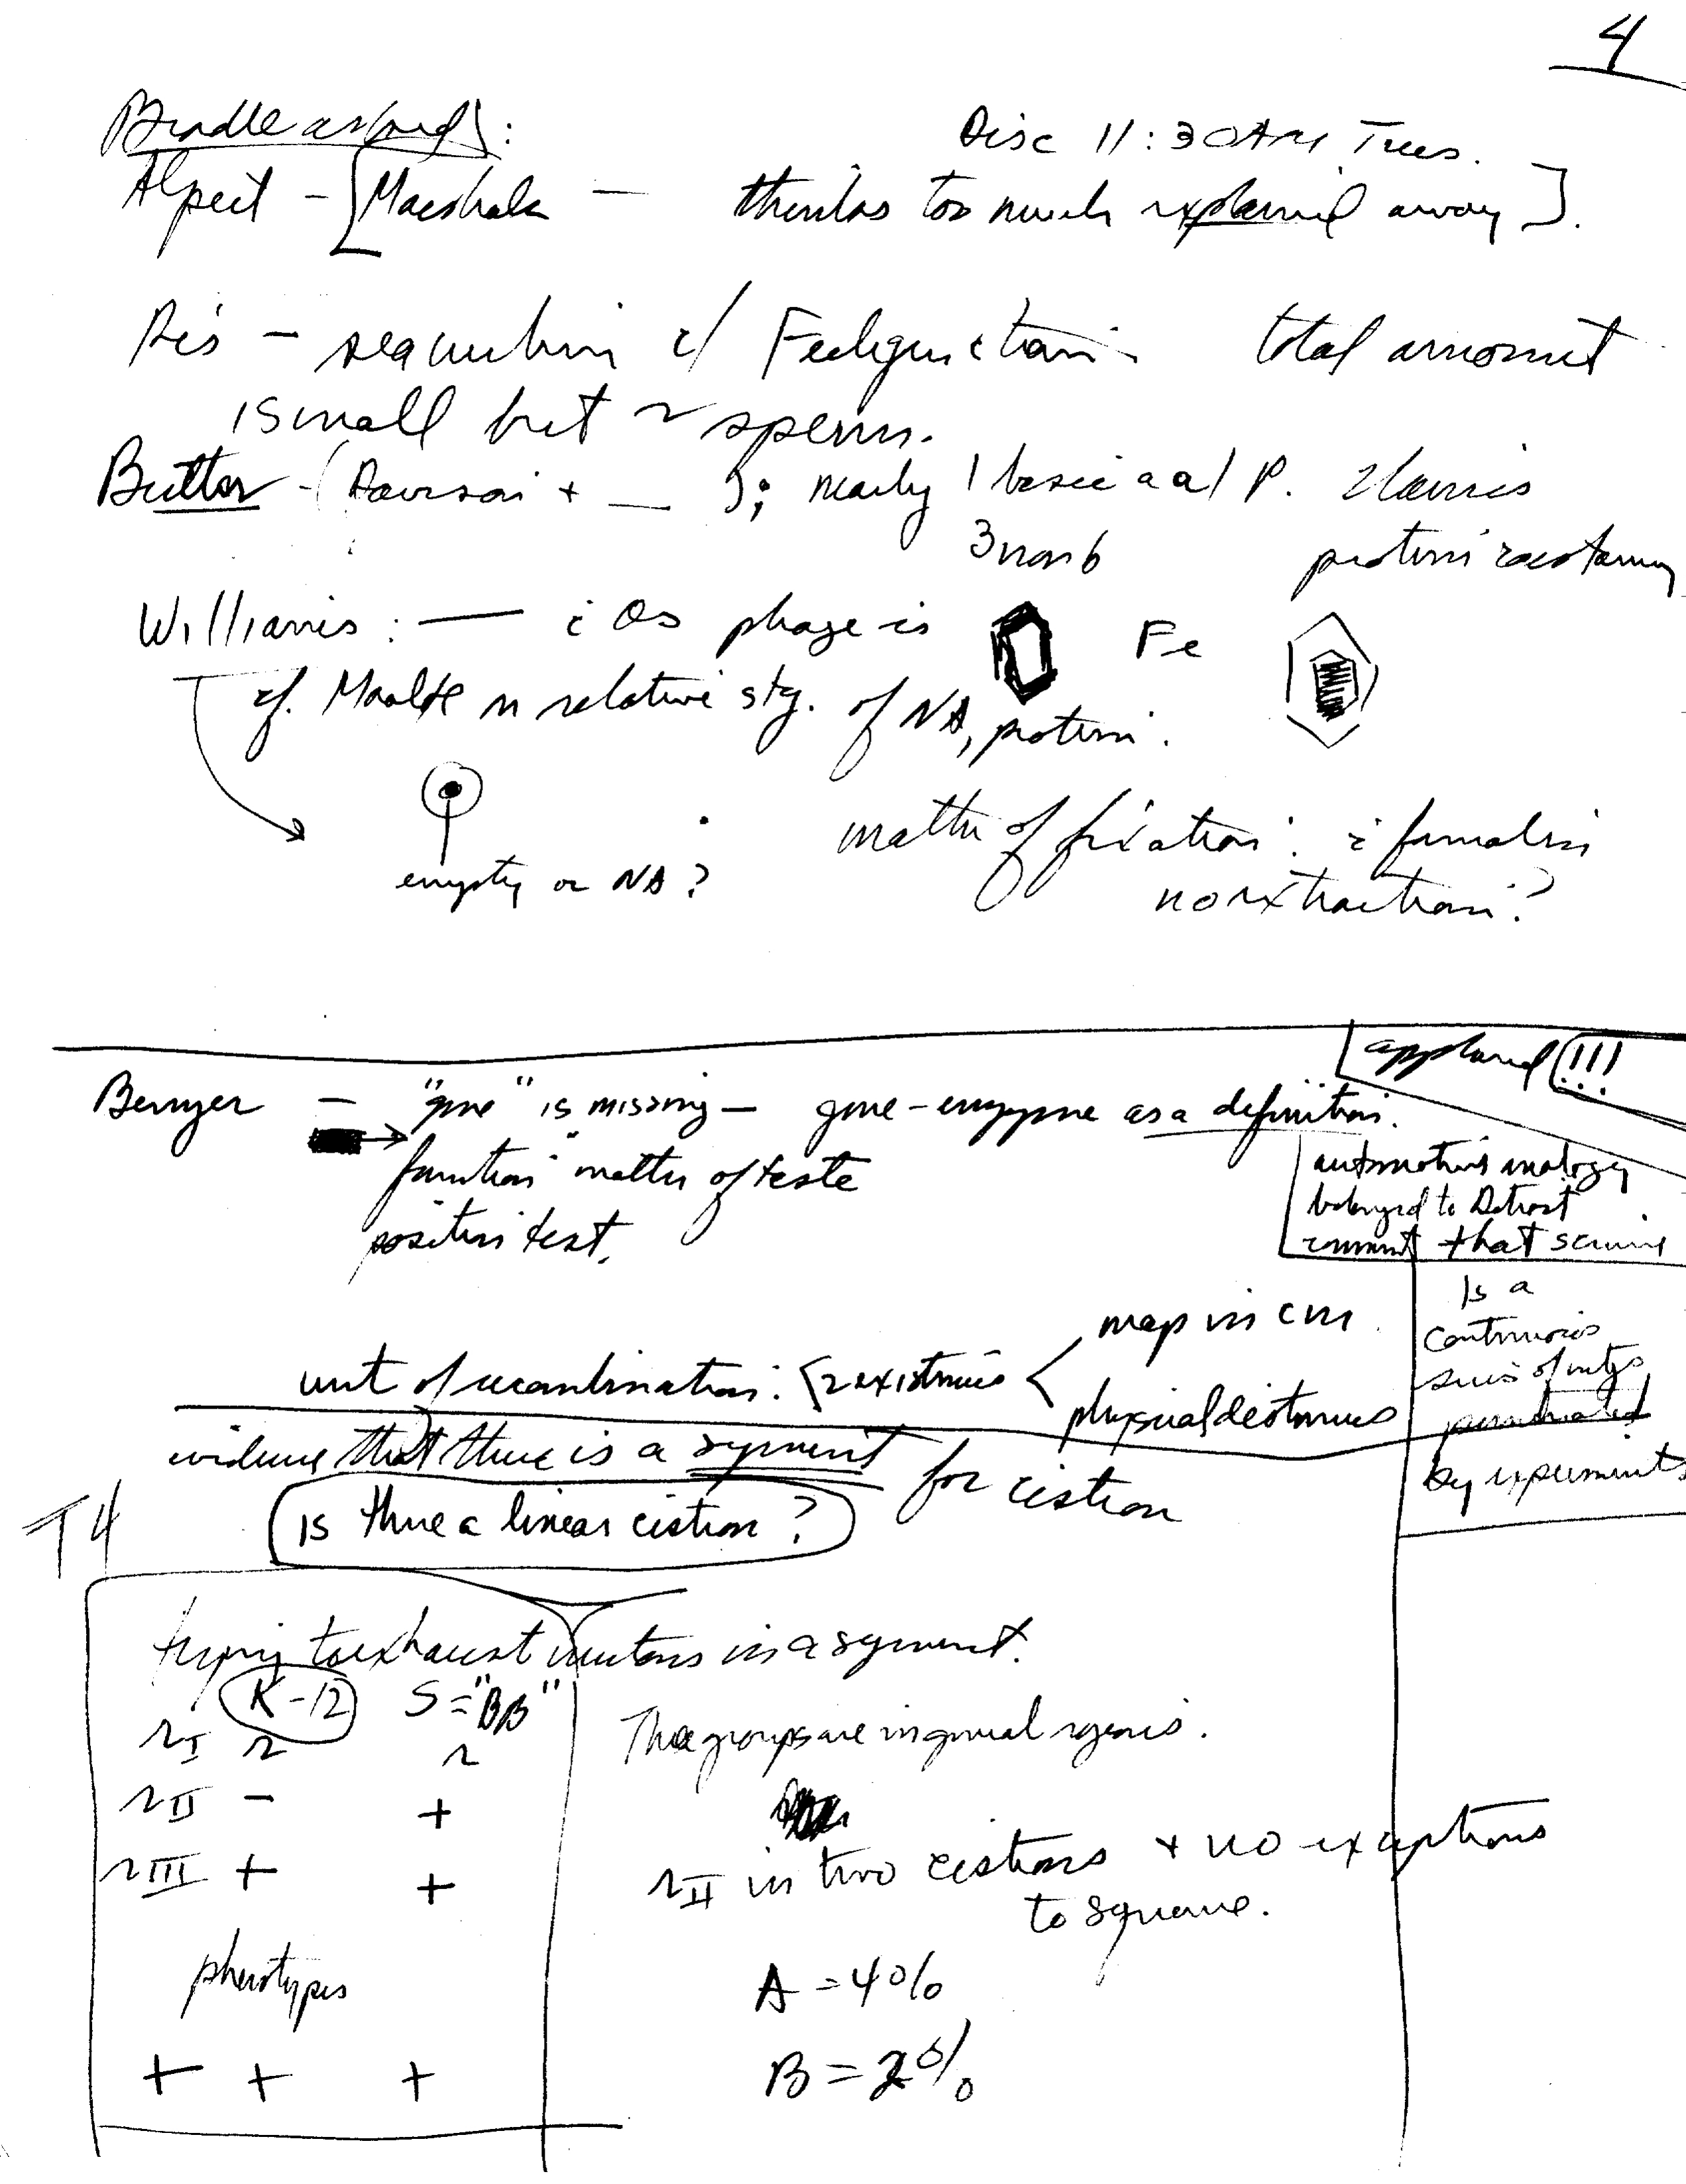 4
Disc 11:30AM Tues.
Alpert - [ — thinks too much explained away].
Ris - c/ Feulgen stain - total amount
is small but ~ sperm.
Butler - ( + __ ); nearly 1 basic a a/ P. Harris
3 non b protein
Williams : — c Os phage is Fe
cf. on relative stg. of NA, protein.
empty or NA?
matter of fixation: c formalin
no extraction?
applause !!!
Benzer — "gene" is missing — gene-enzyme as a definition.
function" matter of taste
positive test.
automotive analogy
belonged to Detroit
comment + that
is a
continuous
series of
by experiments
unit of recombination: < map in cm.
physical distances
evidence that there is a segment for cistron
is there a linear cistron?
T4
trying to exhaust mutons in a segment.
K-12 S="BB"
rI r r
rII - +
rIII + +
phenotypes
+ + +
The groups are in general regions.
rII in two cistrons + no exceptions
to sequence.
A = 4%
B = 2%